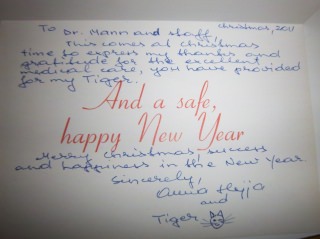 Christmas, 2011
To Dr. Mann and staff,
This comes at Christmas
time to express my thanks and
gratitude for the excellent
medical care, you have provided
for my Tiger.
And a safe,
happy New Year
Merry Christmas, success
and happiness in the New Year
Sincerely,
Anna
and
Tiger